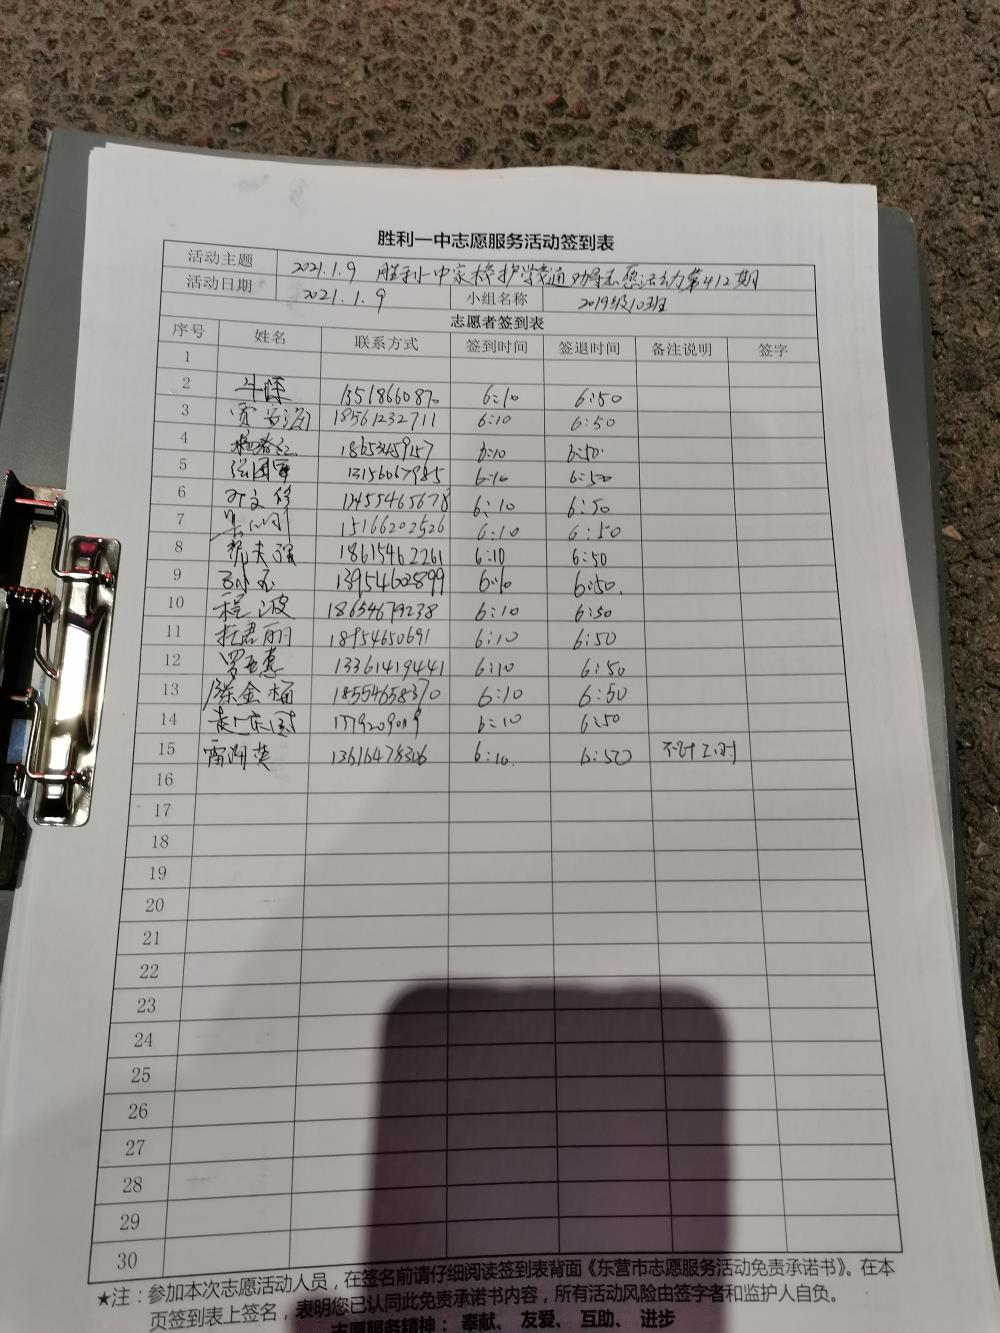 胜利一中志愿服务活动签到表
活动主题 2021.1.9 胜利一中家校护学交通劝导志愿活动第412期
活动日期 2021.1.9 小组名称 2019级10班
志愿者签到表
序号 姓名 联系方式 签到时间 签退时间 备注说明 签字
1
2 13518660870 6:10 6:50
3 18561232711 6:10 6:50
4 18653459157 6:10 6:50
5 张国军 13156067985 6:10 6:50
6 6:10 6:50
7 15166202526 6:10 6:50
8 18615462261 6:10 6:50
9 13954602899 6:10 6:50
10 程波 18654679238 6:10 6:50
11 18954650691 6:10 6:50
12 13361419441 6:10 6:50
13 18554658370 6:10 6:50
14 6:10 6:50
15 6:10 6:50 不计工时
16
17
18
19
20
21
22
23
24
25
26
27
28
29
30
★注：参加本次志愿活动人员，在签名前请仔细阅读签到表背面《东营市志愿服务活动免责承诺书》。在本
页签到表上签名，表明您已认同此免责承诺书内容，所有活动风险由签字者和监护人自负。
志愿服务精神：奉献、友爱、互助、进步